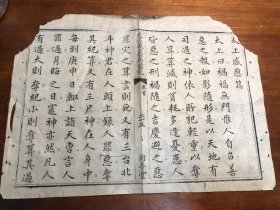 太上感應篇
太上曰禍福無門惟人自召善
惡之報如影隨形是以天地有
司過之神依人所犯輕重以奪
人算算減則貧耗多逢憂患人
皆惡之刑禍隨之吉慶避之惡
星災之算盡則死又有三台北
斗神君在人頭上錄人罪惡奪
其紀算又有三尸神在人身中
每到庚申日輒上詣天曹言人
罪過月晦之日竈神亦然凡人
有過大則奪紀小則奪算其過